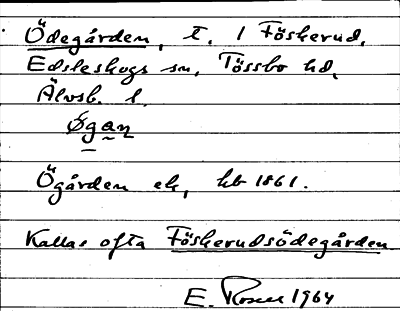 Ödegården, t. 1 Föskerud,
Edsleskogs sn, Tössbo hd,
Älvsb. l.
Øgan
Ögården ek, hb 1861.
Kallas ofta Föskerudsödegården
E. Rosell 1964